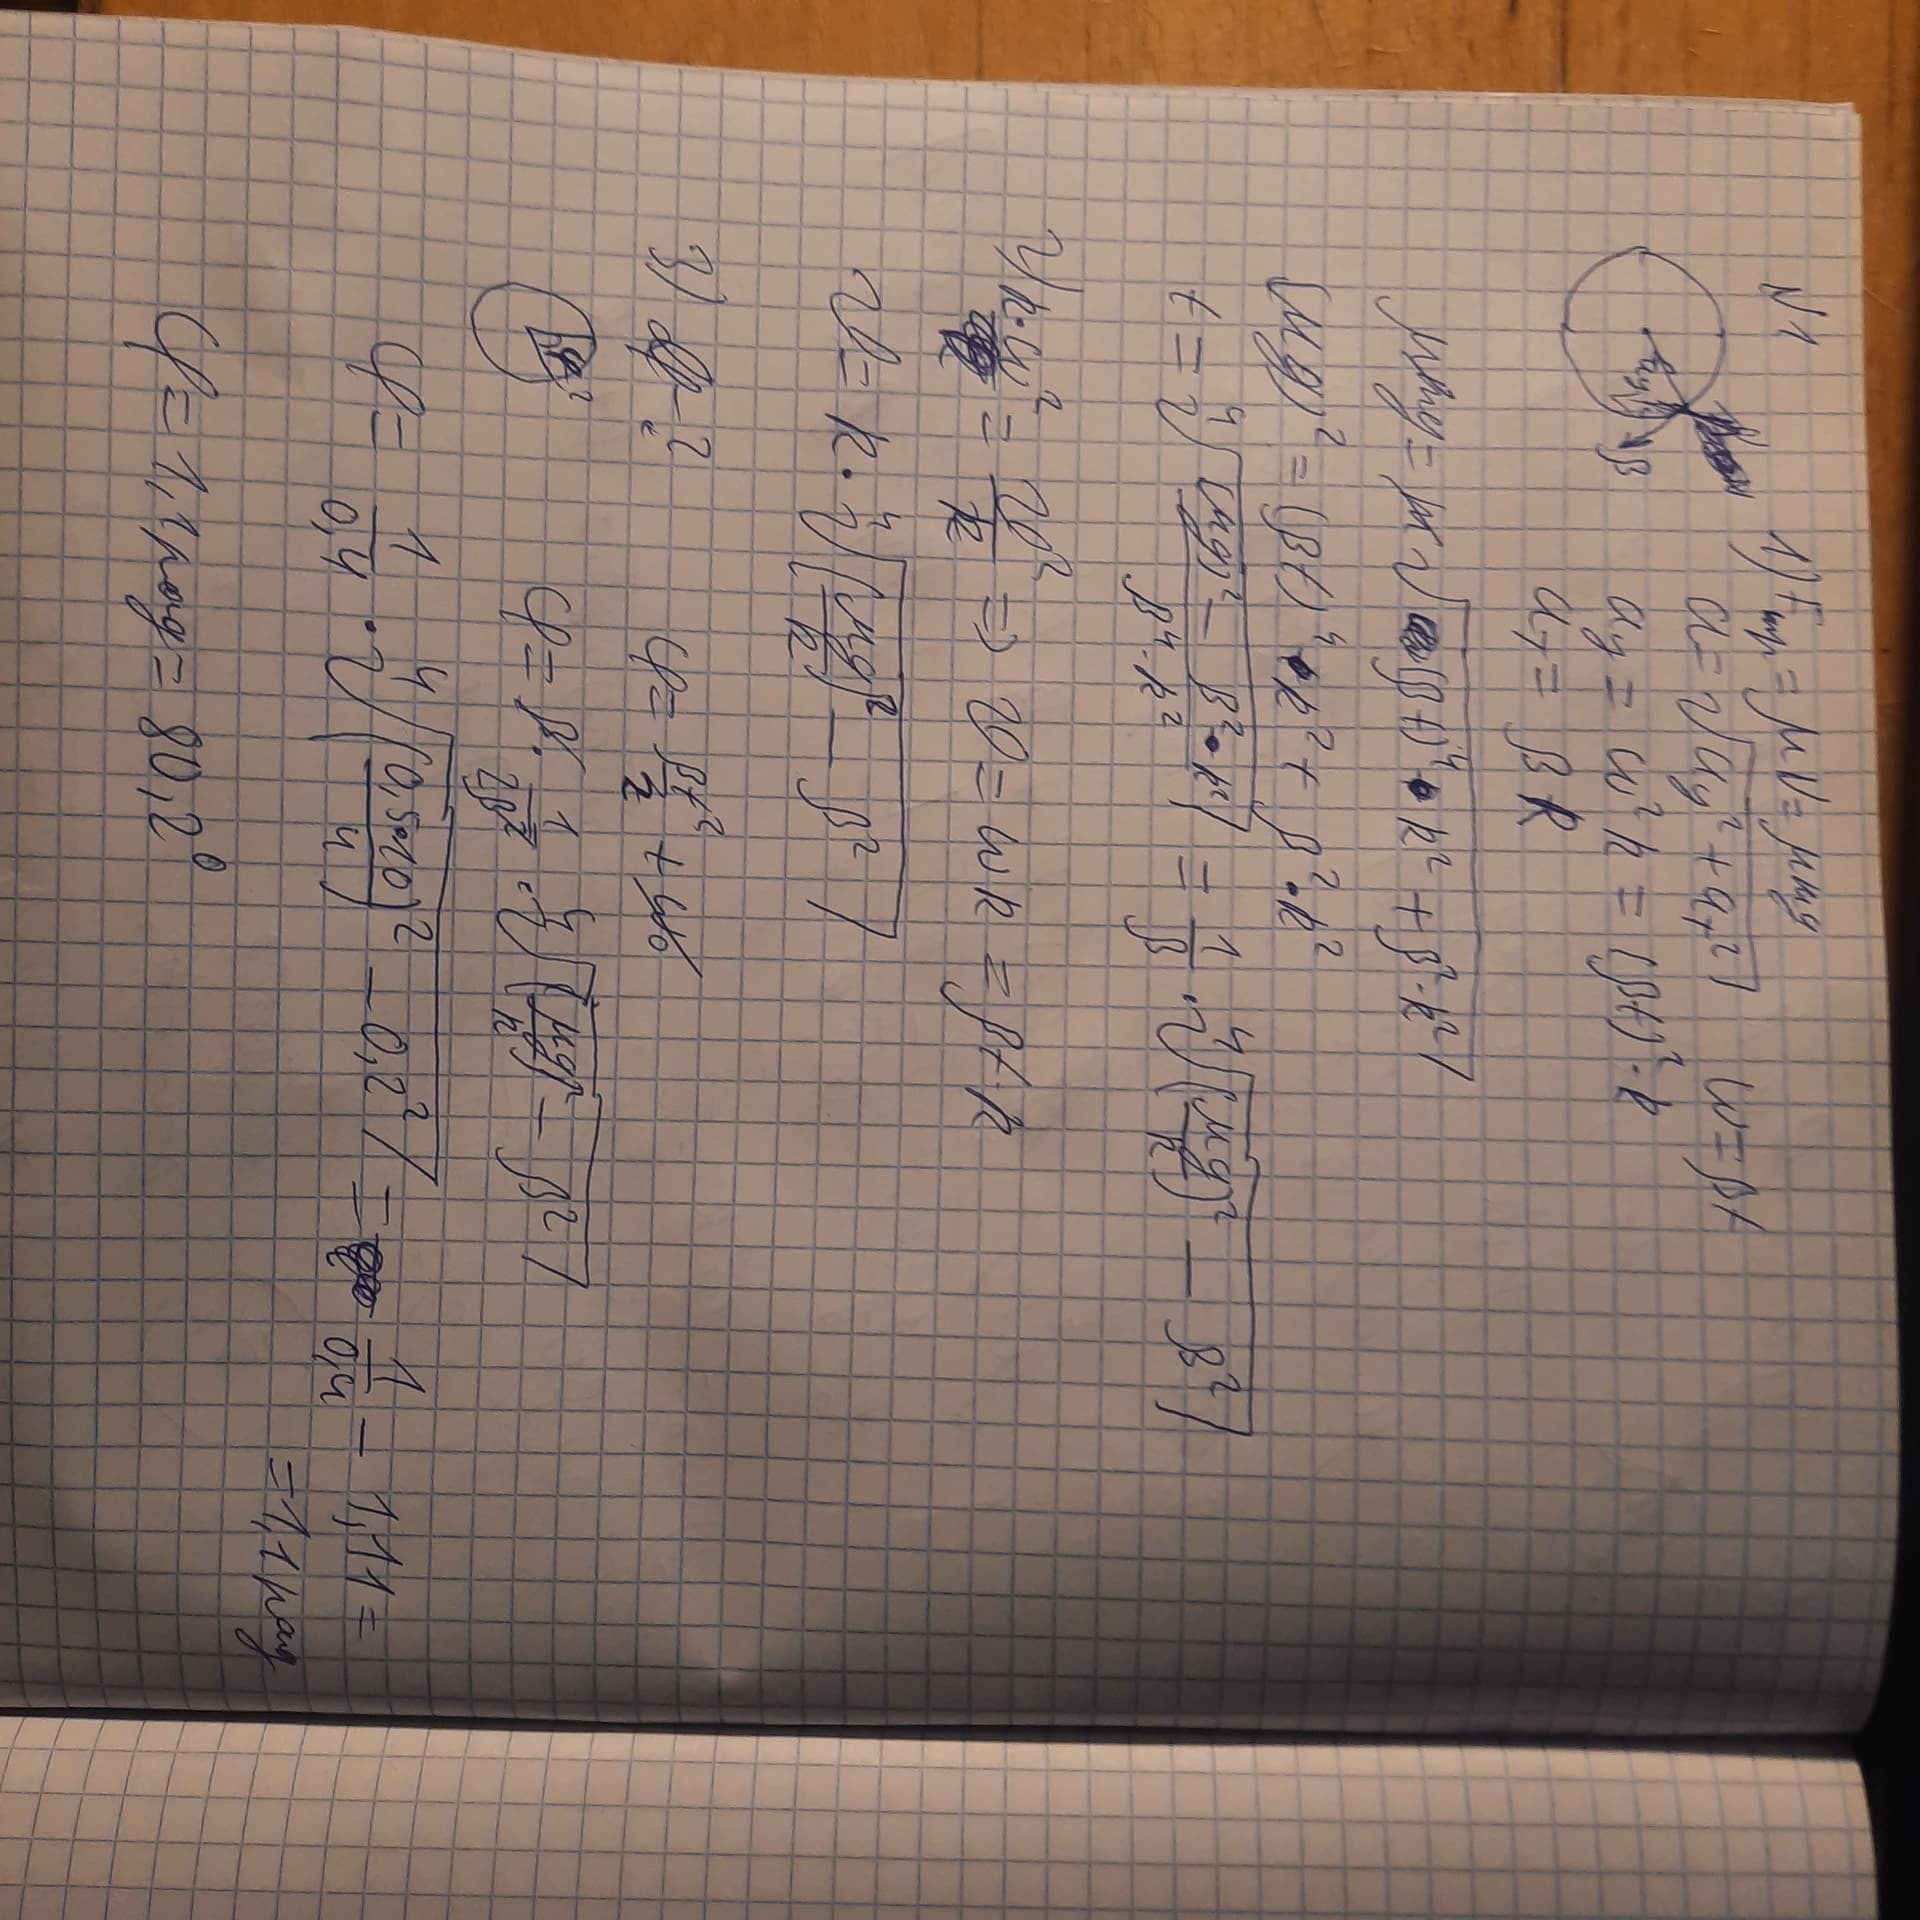 N1
1) Fтр = μN = μmg
a = √(aц² + aτ²) ω = βt
aц = ω²R = (βt)²·R
aτ = βR
aц β
μmg = m √((βt)⁴·R² + β²·R²)
(μg)² = (βt)⁴·R² + β²·R²
t = ⁴√(((μg)² - β²·R²)/(β⁴·R²)) = 1/β · ⁴√((μg/R)² - β²)
2) R·ω² = v²/R => v = ωR = βt·R
v = R·⁴√((μg/R)² - β²)
3) φ - ?
φ = βt²/2 + ω₀t
φ = β·1/(2β²)·²√((μg/R)² - β²)
φ = 1/0,4 · ⁴√((0,5·10/4)² - 0,2²) = 1/0,4 - 1,11 =
= 1,1 рад
φ = 1,1 рад = 80,2°